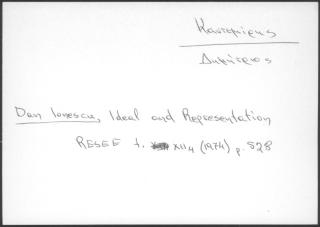 Καντεμίρης
Δημήτριος
Dan Ionescu, Ideal and Representation
RESEE t. XII4 (1974) p. 528